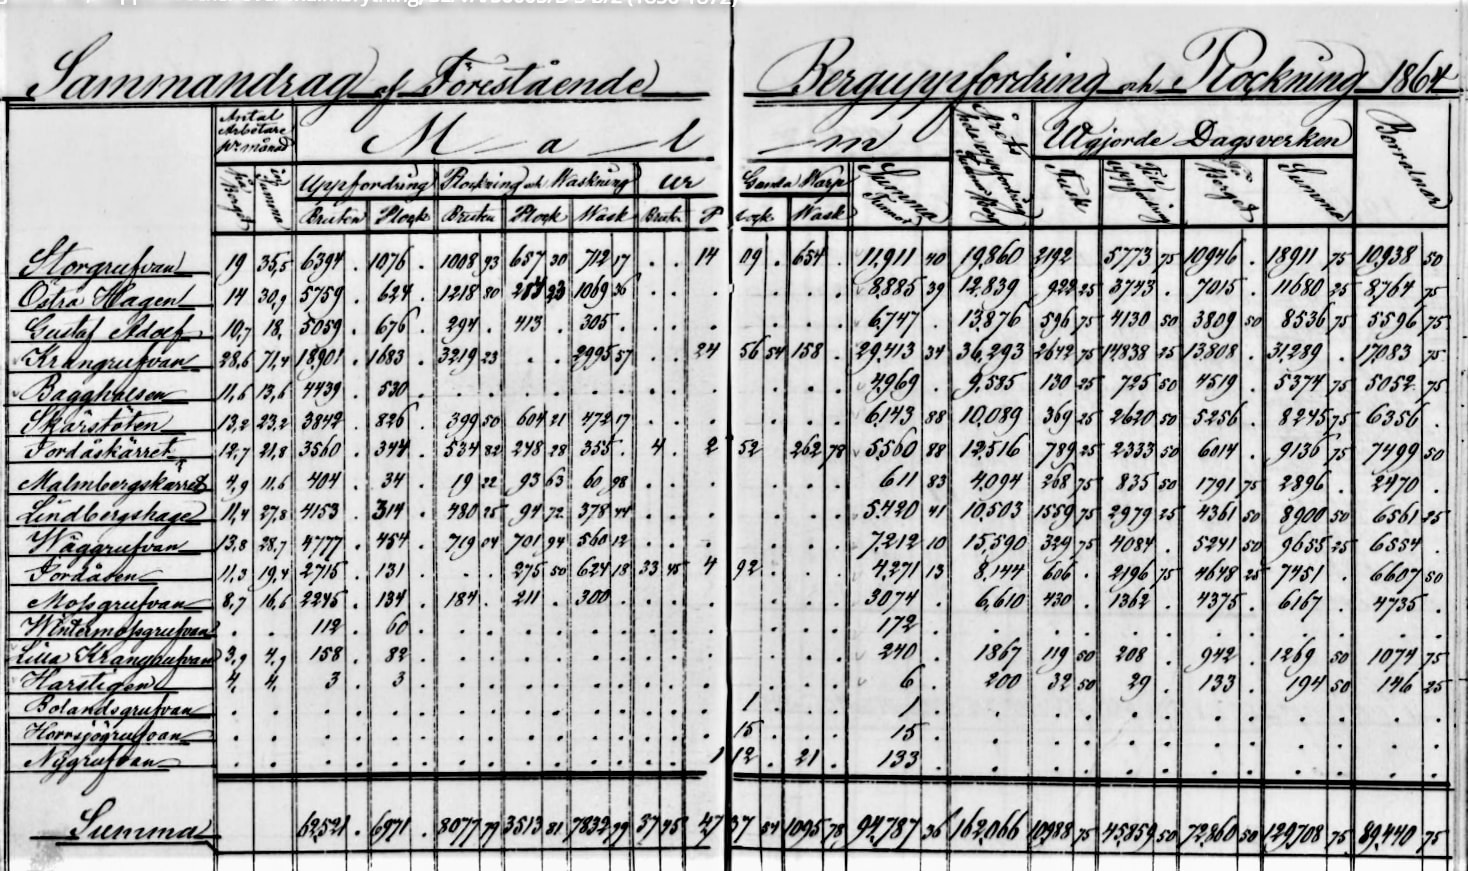 Sammandrag af Förestående Berguppfordring och Plockning 1864
Antal Arbetare pr månad Malm Årets Utgjorde Dagsverken Borrelnar
Uppfordring Plockning och Waskning ur Gamla Warp Summa Tunnor Fust Till uppfordring Summa
Bruten Plock Bruten Plock Wask Bruten Plock Wask
Storgrufvan 19 . 35,5 6394 . 1076 . 1008 93 657 30 712 17 . . 1409 . 654 . 11,911 40 19,860 2192 . 5773 75 10946 . 18911 75 10,938 50
Östra Hagen 14 . 30,9 5759 . 624 . 1218 80 1069 36 . . . . . . 8,885 39 12,839 922 25 3743 . 7015 . 11680 25 8,764 75
Gustaf Adolf 10,7 18, 5059 . 676 . 294 . 413 . 305 . . . . . . . 6,747 . 13,876 596 75 4130 50 3809 50 8536 75 5596 75
Krangrufvan 28,6 71,4 18,901 . 1683 . 3219 23 . . 2995 57 . . 2456 54 158 . 29,413 34 36,293 2642 75 14838 25 13,808 . 31,289 . 17,083 75
Bagghalsen 11,6 13,6 4439 . 530 . . . . . . . . . . . . . 4,969 . 9,585 130 25 725 50 4519 . 5374 75 5052 75
Skärstöten 13,2 23,2 3842 . 826 . 399 50 604 21 472 17 . . . . . . 6,143 88 10,089 369 25 2620 50 5256 . 8245 75 6356 .
Jordåskärret 12,7 21,8 3560 . 344 . 534 82 248 28 355 . 4 . 252 . 262 78 5,560 88 12,516 789 25 2333 50 6014 . 9136 75 7499 50
Malmbergskärret 4,9 11,6 404 . 34 . 19 22 93 63 60 98 . . . . . . 611 83 4,094 268 75 835 50 1791 75 2896 . 2470 .
Lindbergshage 11,4 27,8 4153 . 314 . 480 25 94 72 378 44 . . . . . . 5,420 41 10,503 1559 75 2979 25 4361 50 8900 50 6561 25
Wäggrufvan 13,8 28,7 4777 . 454 . 719 04 701 94 560 12 . . . . . . 7,212 10 15,590 329 75 4084 . 5241 50 9655 25 6554 .
Jordåsen 11,3 19,4 2715 . 131 . . . 275 50 624 18 33 45 492 . . . 4,271 13 8,144 606 . 2196 75 4648 25 7451 . 6607 50
Mossgrufvan 8,7 16,6 2245 . 134 . 184 . 211 . 300 . . . . . . . 3074 . 6,610 430 . 1362 . 4375 . 6167 . 4735 .
Wintermossgrufvan . . 112 . 60 . . . . . . . . . . . . . 172 . . . . . . . . . . . .
Lilla Krangrufvan 3,9 4,9 158 . 82 . . . . . . . . . . . . . 240 . 1867 119 50 208 . 942 . 1269 50 1074 75
Harstigen 4, 4, 3 . 3 . . . . . . . . . . . . . 6 . 200 32 50 29 . 133 . 194 50 146 25
Bolandsgrufvan . . . . . . . . . . . . . . 1 . . . 1 . . . . . . . . . . . .
Hornsjögrufvan . . . . . . . . . . . . . . 15 . . . 15 . . . . . . . . . . . .
Nygrufvan . . . . . . . . . . . . . . 112 . 21 . 133 . . . . . . . . . . . .
Summa 62,521 . 6971 . 8077 79 3513 81 7832 99 37 45 4737 54 1095 78 94,787 36 162,066 10,988 75 45,859 50 72,860 50 129,708 75 89,440 75